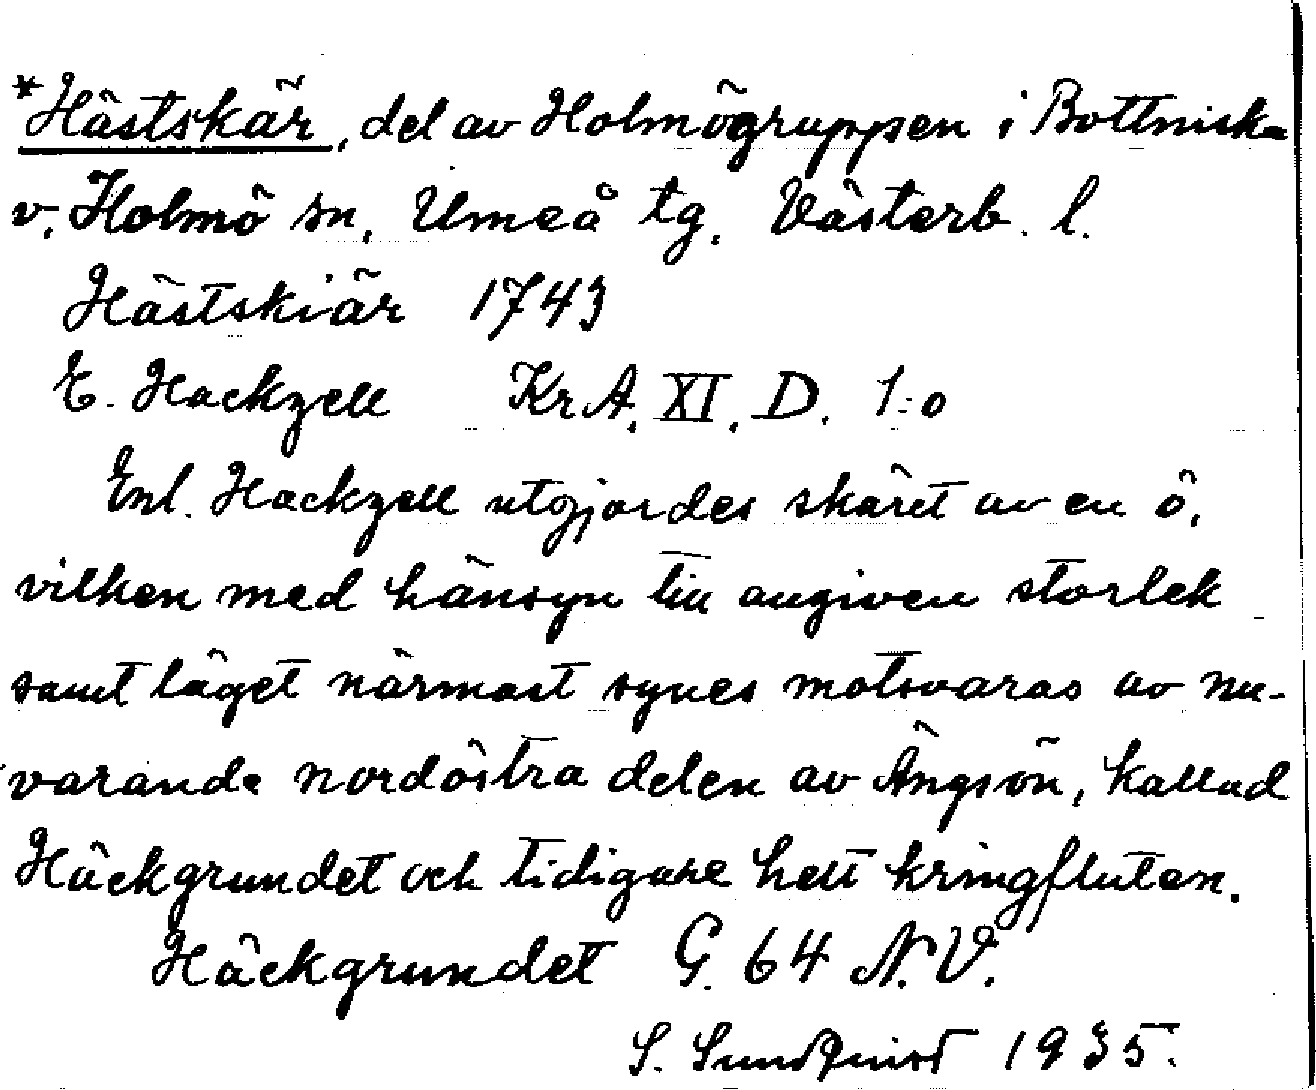 *Hästskär, del av Holmögruppen i Bottniska
v. Holmö sn. Umeå tg. Västerb. l.
Hästskiär 1743
E. Hackzell KrA. XI. D. 1:o
Enl. Hackzell utgjordes skäret av en ö,
vilken med hänsyn till angiven storlek
samt läget närmast synes motsvaras av nu-
varande nordöstra delen av Ängsön, kallad
Häckgrundet och tidigare helt kringfluten.
Häckgrundet G. 64 N.V.
S. Sundquist 1935.